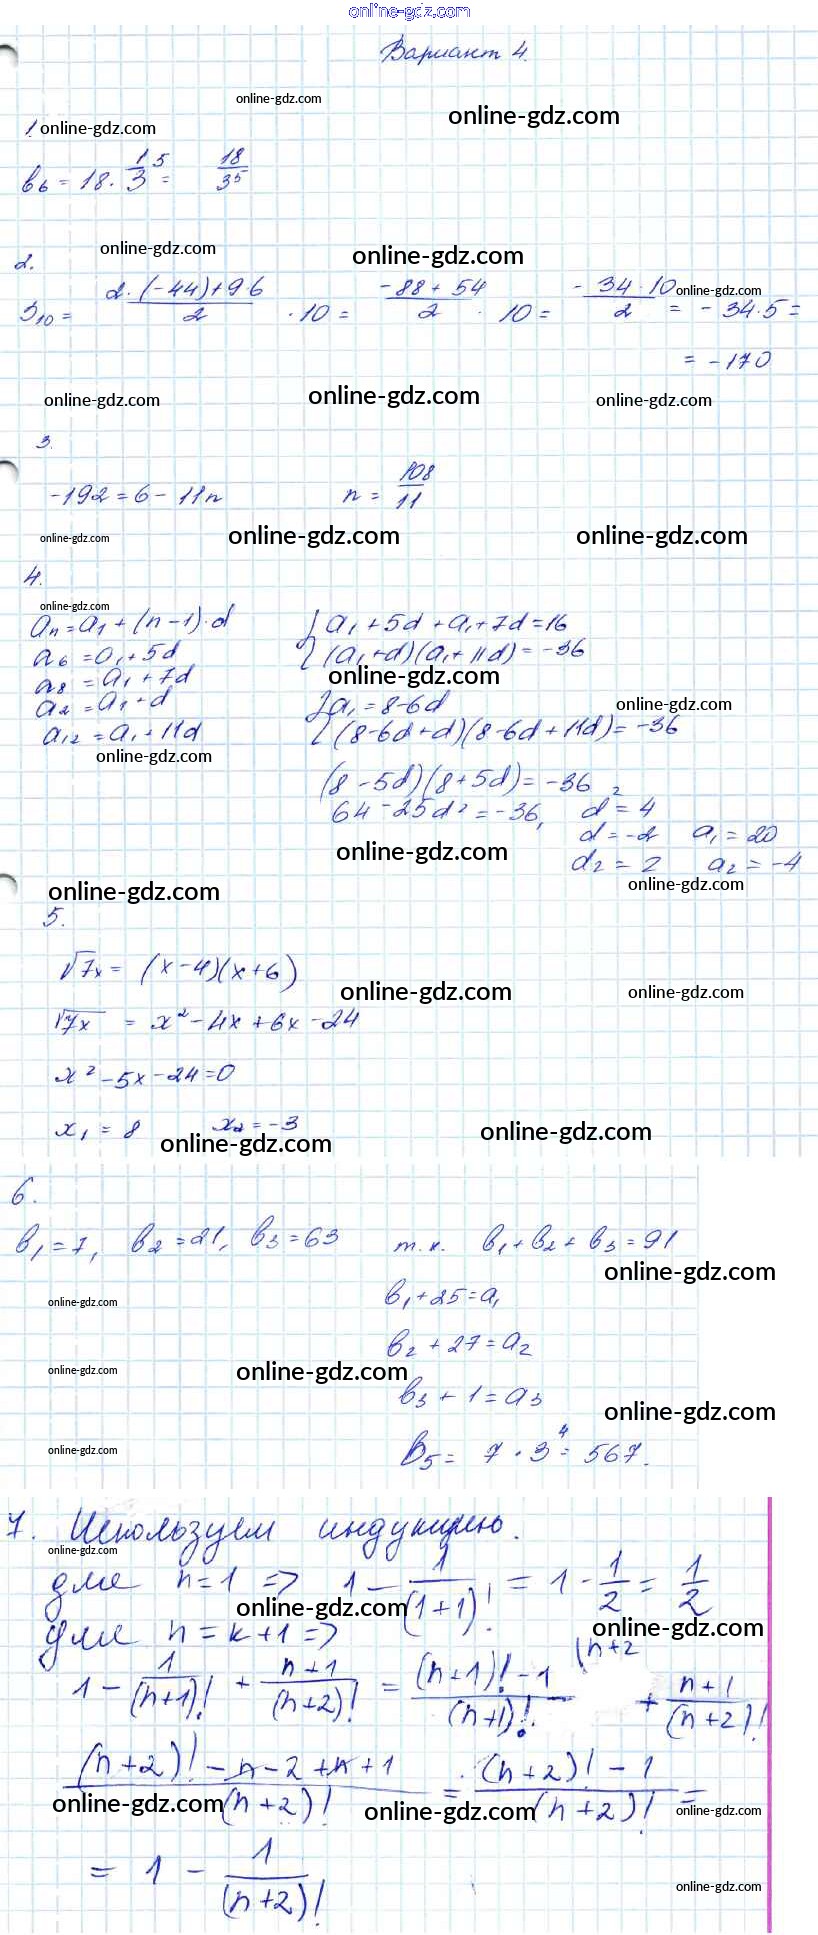 online-gdz.com
Вариант 4.
online-gdz.com
online-gdz.com
1. online-gdz.com
b₆ = 18 · 1/3⁵ = 18/3⁵
2. online-gdz.com online-gdz.com
S₁₀ = (2·(-44)+9·6)/2 · 10 = (-88+54)/2 · 10 = -34·10/2 = -34·5 =
online-gdz.com
= -170
online-gdz.com online-gdz.com online-gdz.com
3.
-192 = 6 - 11n n = 108/11
online-gdz.com online-gdz.com online-gdz.com
4.
online-gdz.com
aₙ = a₁ + (n-1)·d { a₁ + 5d + a₁ + 7d = 16
a₆ = a₁ + 5d (a₁+d)(a₁+11d) = -36
a₈ = a₁ + 7d online-gdz.com
a₂ = a₁ + d { a₁ = 8-6d online-gdz.com
a₁₂ = a₁ + 11d (8-6d+d)(8-6d+11d) = -36
online-gdz.com
(8-5d)(8+5d) = -36
64 - 25d² = -36, d² = 4
d = -2 a₁ = 20
online-gdz.com
d₂ = 2 a₂ = -4
online-gdz.com online-gdz.com
5.
√7x = (x-4)(x+6)
online-gdz.com online-gdz.com
√7x = x² - 4x + 6x - 24
x² - 5x - 24 = 0
x₁ = 8 x₂ = -3
online-gdz.com online-gdz.com
6.
b₁ = 7, b₂ = 21, b₃ = 63 т.к. b₁ + b₂ + b₃ = 91
online-gdz.com
online-gdz.com b₁ + 25 = a₁
b₂ + 27 = a₂
online-gdz.com online-gdz.com
b₃ + 1 = a₃
online-gdz.com
online-gdz.com b₅ = 7 · 3⁴ = 567.
7. Используем индукцию.
online-gdz.com
для n = 1 => 1 - 1/(1+1)! = 1 - 1/2 = 1/2
online-gdz.com online-gdz.com
для n = k+1 =>
1 - 1/(n+1)! + (n+1)/(n+2)! = ((n+1)! - 1)/(n+1)! (n+2 + (n+1)/(n+2)!
((n+2)! - n - 2 + n + 1)/(n+2)! = ((n+2)! - 1)/(n+2)! =
online-gdz.com online-gdz.com online-gdz.com
= 1 - 1/(n+2)!
online-gdz.com